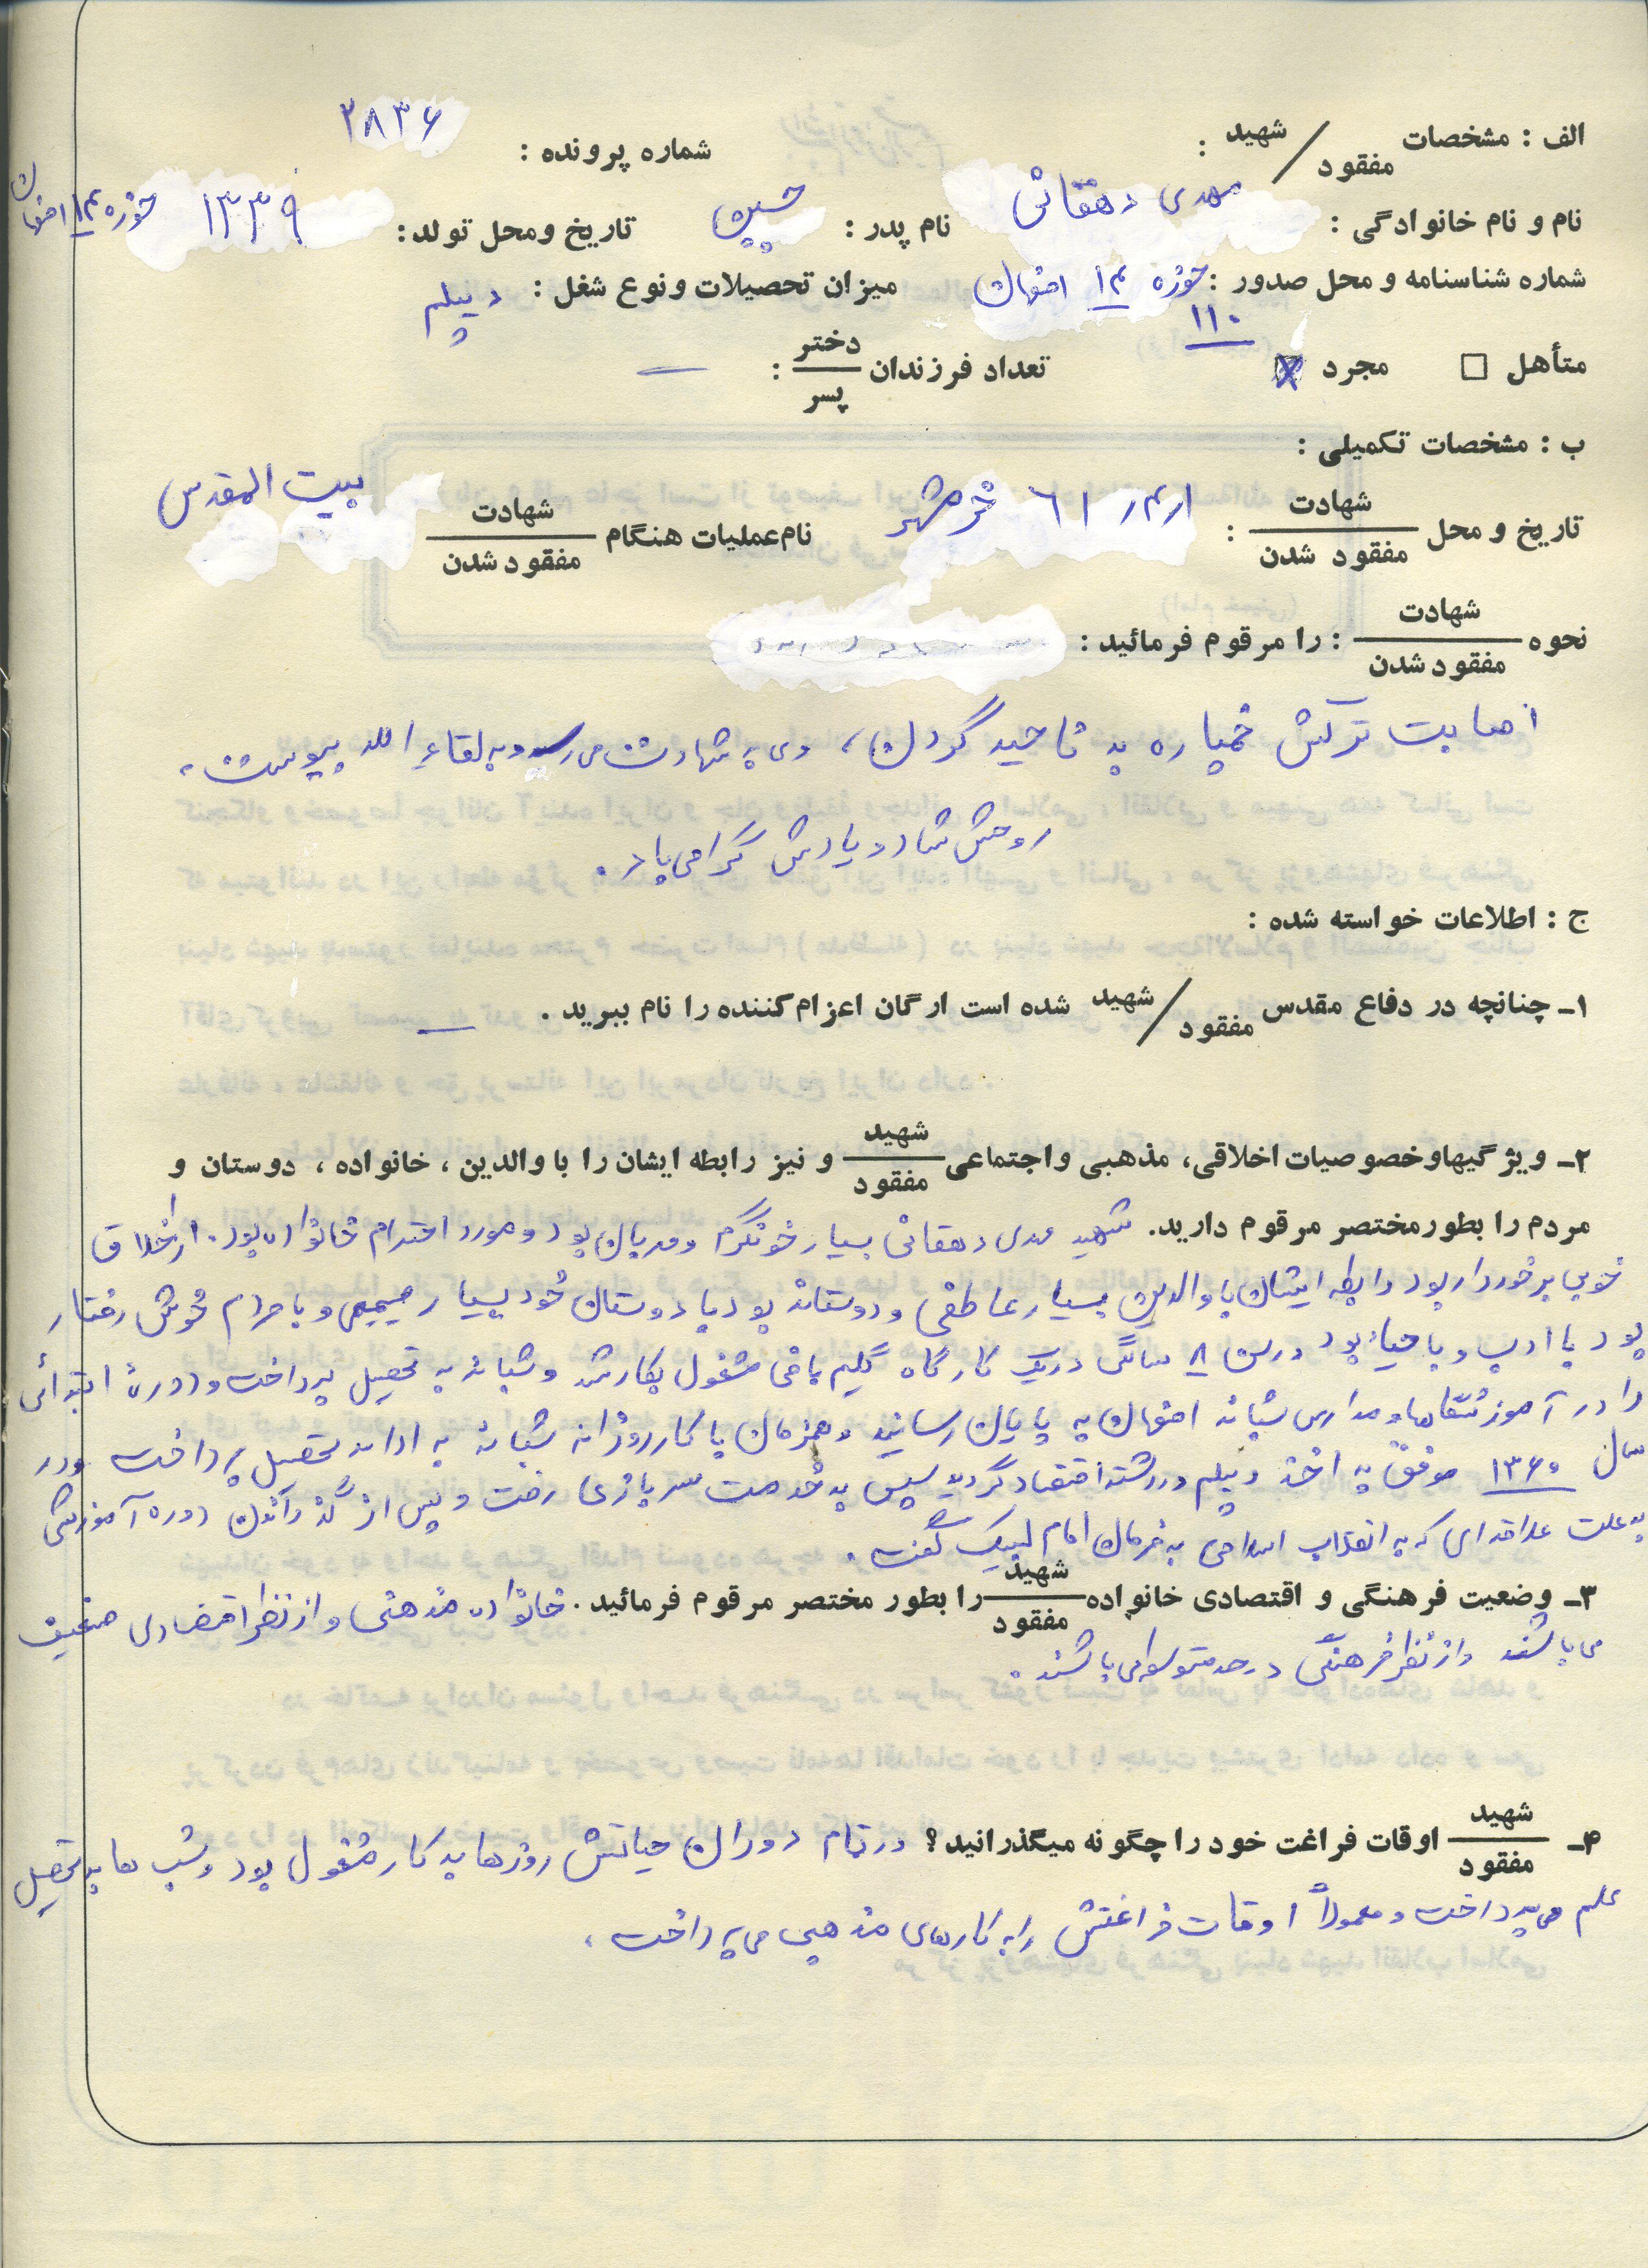 الف : مشخصات شهید / مفقود :
شماره پرونده : ۲۸۳۶
نام و نام خانوادگی : مهدی دهقانی نام پدر : حسین تاریخ ومحل تولد : ۱۳۳۹ حوزه ۱۴ اصفهان
شماره شناسنامه و محل صدور : حوزه ۱۴ اصفهان میزان تحصیلات ونوع شغل : دیپلم
۱۱۰
متأهل □ مجرد ☒ تعداد فرزندان دختر / پسر : —
ب : مشخصات تکمیلی :
تاریخ و محل شهادت / مفقود شدن : ۶۱/۴/۱ خرمشهر نام عملیات هنگام شهادت / مفقود شدن بیت المقدس
نحوه شهادت / مفقود شدن : را مرقوم فرمائید :
اصابت ترکش خمپاره به ناحیه گردن، وی به شهادت می‌رسد و به لقاء الله پیوست.
روحش شاد و یادش گرامی باد.
ج : اطلاعات خواسته شده :
۱- چنانچه در دفاع مقدس شهید / مفقود شده است ارگان اعزام کننده را نام ببرید . —
۲- ویژگیها و خصوصیات اخلاقی، مذهبی و اجتماعی شهید / مفقود و نیز رابطه ایشان را با والدین ، خانواده ، دوستان و
مردم را بطور مختصر مرقوم دارید. شهید مهدی دهقانی بسیار خونگرم و مهربان بود و مورد احترام خانواده بود. از اخلاق
خوبی برخوردار بود رابطه ایشان با والدین بسیار عاطفی و دوستانه بود با دوستان خود بسیار صمیمی و با مردم خوش رفتار
بود با ادب و با حیاء بود در سن ۸ سالگی در یک کارگاه گلیم بافی مشغول بکار شد و شبانه به تحصیل پرداخت و دوره ابتدائی
را در آموزشگاهها و مدارس شبانه اصفهان به پایان رسانید و همزمان با کار روزانه شبانه به ادامه تحصیل پرداخت و در
سال ۱۳۶۰ موفق به اخذ دیپلم در رشته اقتصاد گردید سپس به خدمت سربازی رفت و پس از گذراندن دوره آموزشی
به علت علاقه ای که به انقلاب اسلامی به فرمان امام لبیک گفت.
۳- وضعیت فرهنگی و اقتصادی خانواده شهید / مفقود را بطور مختصر مرقوم فرمائید . خانواده مذهبی و از نظر اقتصادی ضعیف
می باشند و از نظر فرهنگی در حد متوسط می باشند.
۴- شهید / مفقود اوقات فراغت خود را چگونه میگذرانید؟ در تمام دوران حیاتش روزها به کار مشغول بود و شب ها به تحصیل
علم می پرداخت و معمولاً اوقات فراغتش را به کارهای مذهبی می پرداخت.